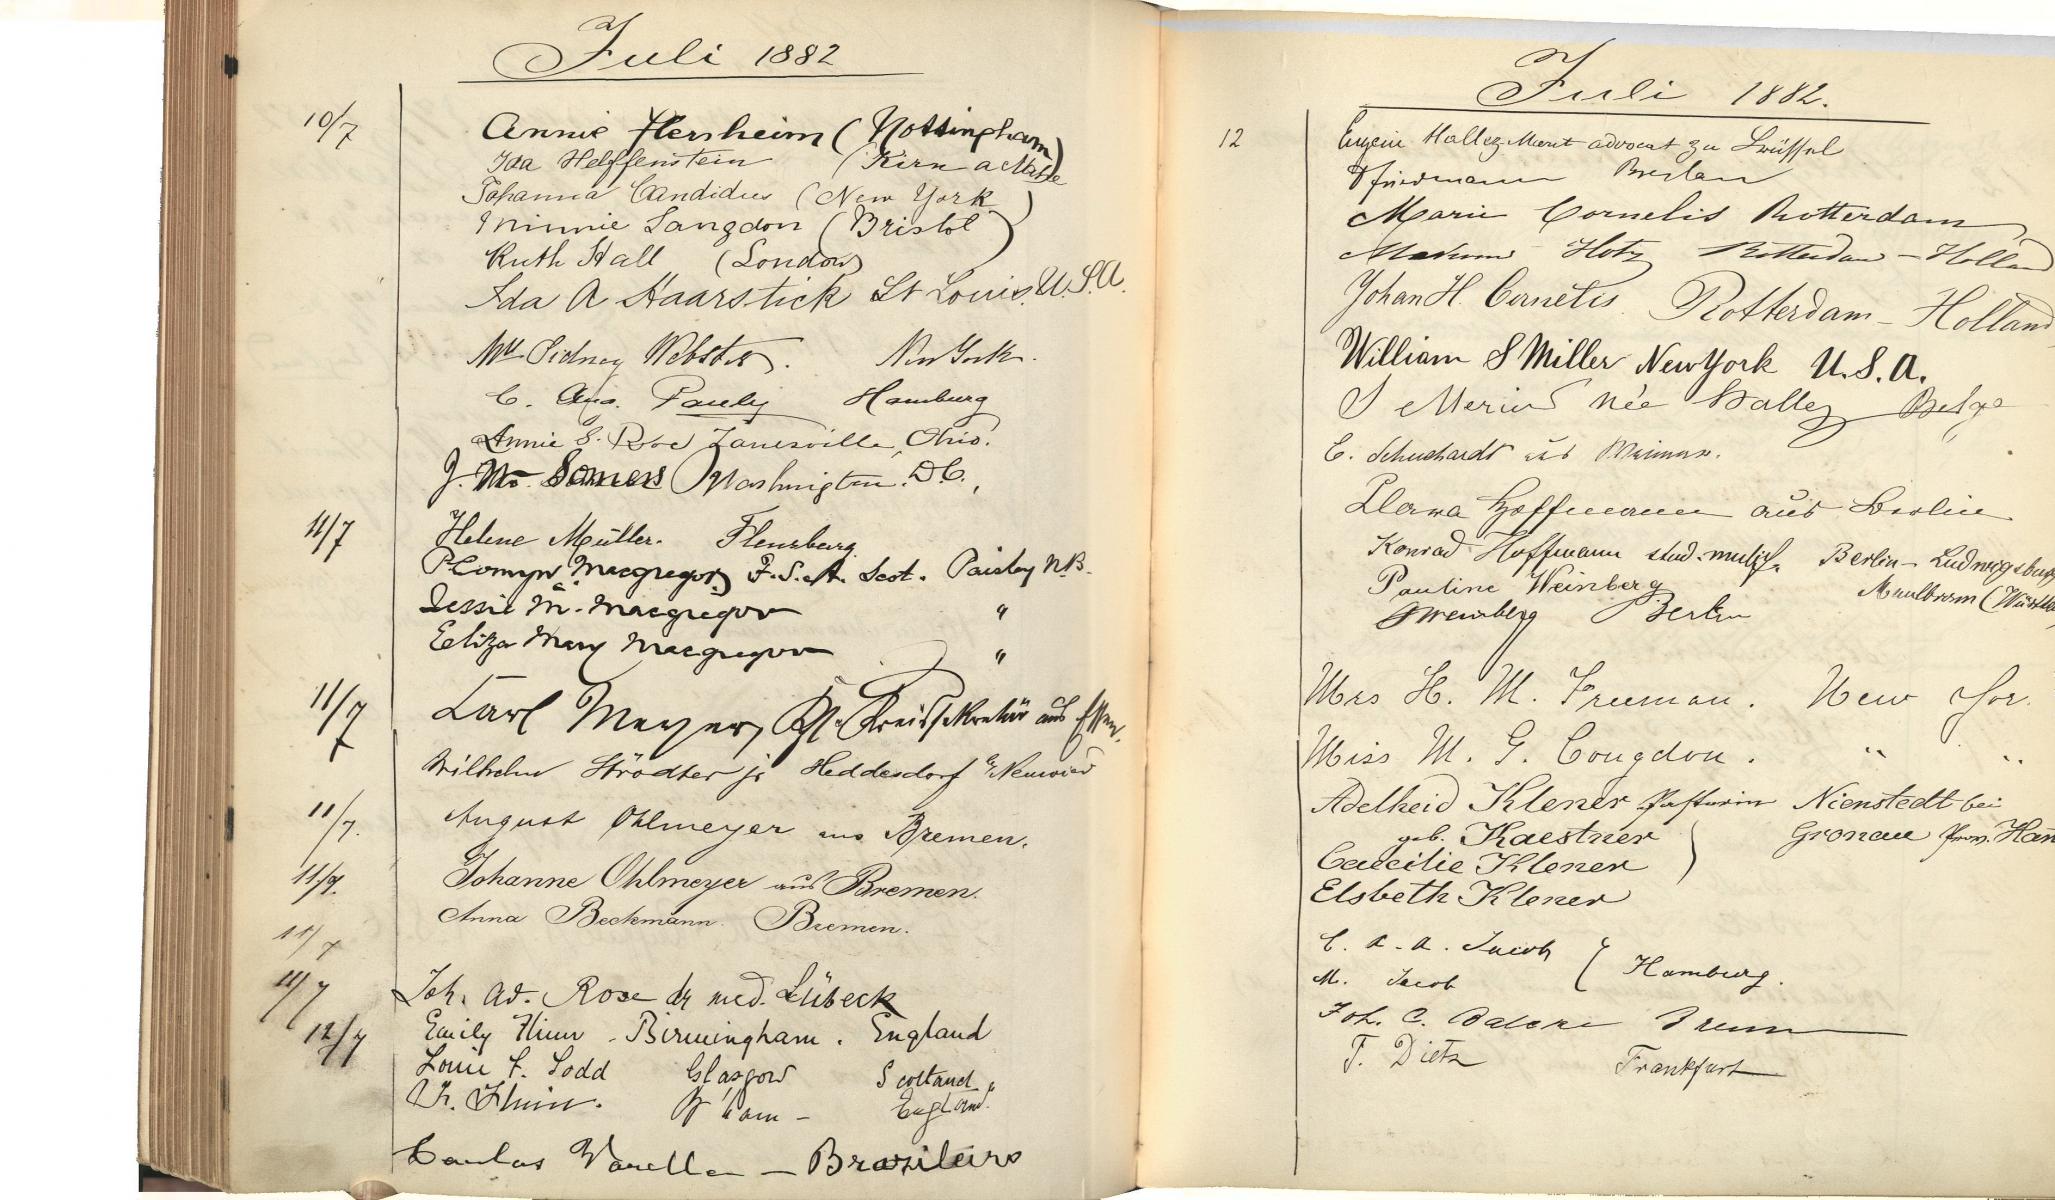 Juli 1882
10/7 Annie Hersheim (Nottingham)
Ida Helffenstein (Kirn a Nahe
Johanna Candidus (New York)
Minnie Langdon (Bristol)
Ruth Hall (London)
Ada A Haarstick St Louis. U.S.A.
Sidney Webster. New York.
C. Aug. Pauly Hamburg
Annie S. Zanesville, Ohio.
J. M. Somers Washington. D.C.,
11/7 Helene Müller. Flensburg
Macgregor F.S.A. Scot. Paisley N.B.
Jessie M. Macgregor "
Eliza Mary Macgregor "
11/7 Karl Meyer, Kgl. Kreissekretär aus Essen.
Wilhelm Strödter jr Heddesdorf b/ Neuwied
11/7. August Ohlmeyer aus Bremen.
11/7. Johanne Ohlmeyer aus Bremen.
11/7 Anna Beckmann. Bremen.
11/7 Joh. Ad. Rose dr med. Lübeck
12/7 Emily - Birmingham. England
Louie F. Glasgow Scotland
B"ham - England.
Varella - Brazileiro
Juli 1882.
12 advocat zu Brüssel
Friedmann Breslau
Marie Cornelis Rotterdam
Hotz Rotterdam - Holland
Johan H. Cornelis Rotterdam - Holland
William S Miller New York U.S.A.
née Hallez Belge
C. Schuchardt aus Weimar.
Hoffmann aus Berlin
Konrad Hoffmann stud. Berlin - Ludwigsburg
Pauline Weinberg Maulbronn (Württ
Weinberg Berlin
Mrs H. M. Freeman. New Yor.
Miss M. G. Congdon. " "
Adelheid Klener Pastorin Nienstedt bei
geb. Kaestner Gronau Prov. Han
Caecilie Klener
Elsbeth Klener
C. A. A. Jacob
M. Jacob Hamburg.
Joh. C.
T. Dietz Frankfurt